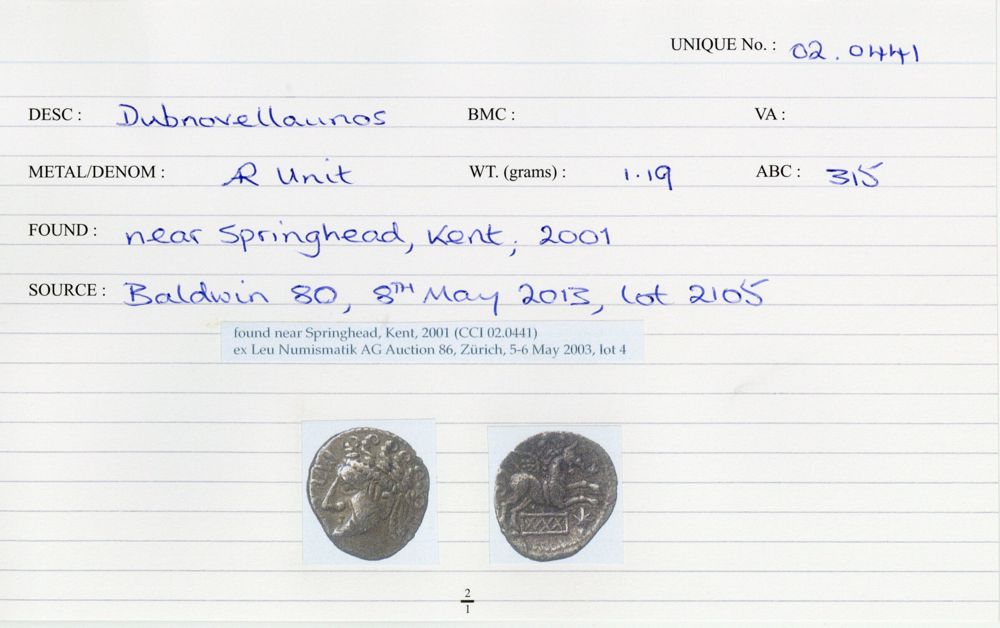 UNIQUE No. : 02.0441
DESC : Dubnovellaunos BMC : VA :
METAL/DENOM : AR Unit WT. (grams) : 1.19 ABC : 315
FOUND : near Springhead, Kent, 2001
SOURCE : Baldwin 80, 8TH May 2013, lot 2105
found near Springhead, Kent, 2001 (CCI 02.0441)
ex Leu Numismatik AG Auction 86, Zürich, 5-6 May 2003, lot 4
2
1